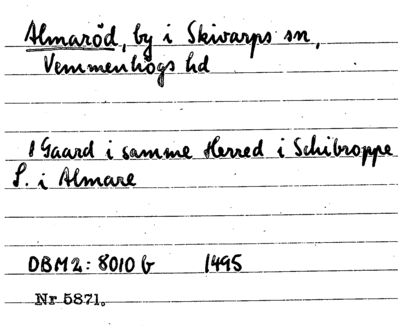 Almaröd, by i Skivarps sn,
Vemmenhögs hd
1 Gaard i samme Herred i Schibroppe
S. i Almare
DBM2: 8010 b 1495
Nr 5871.